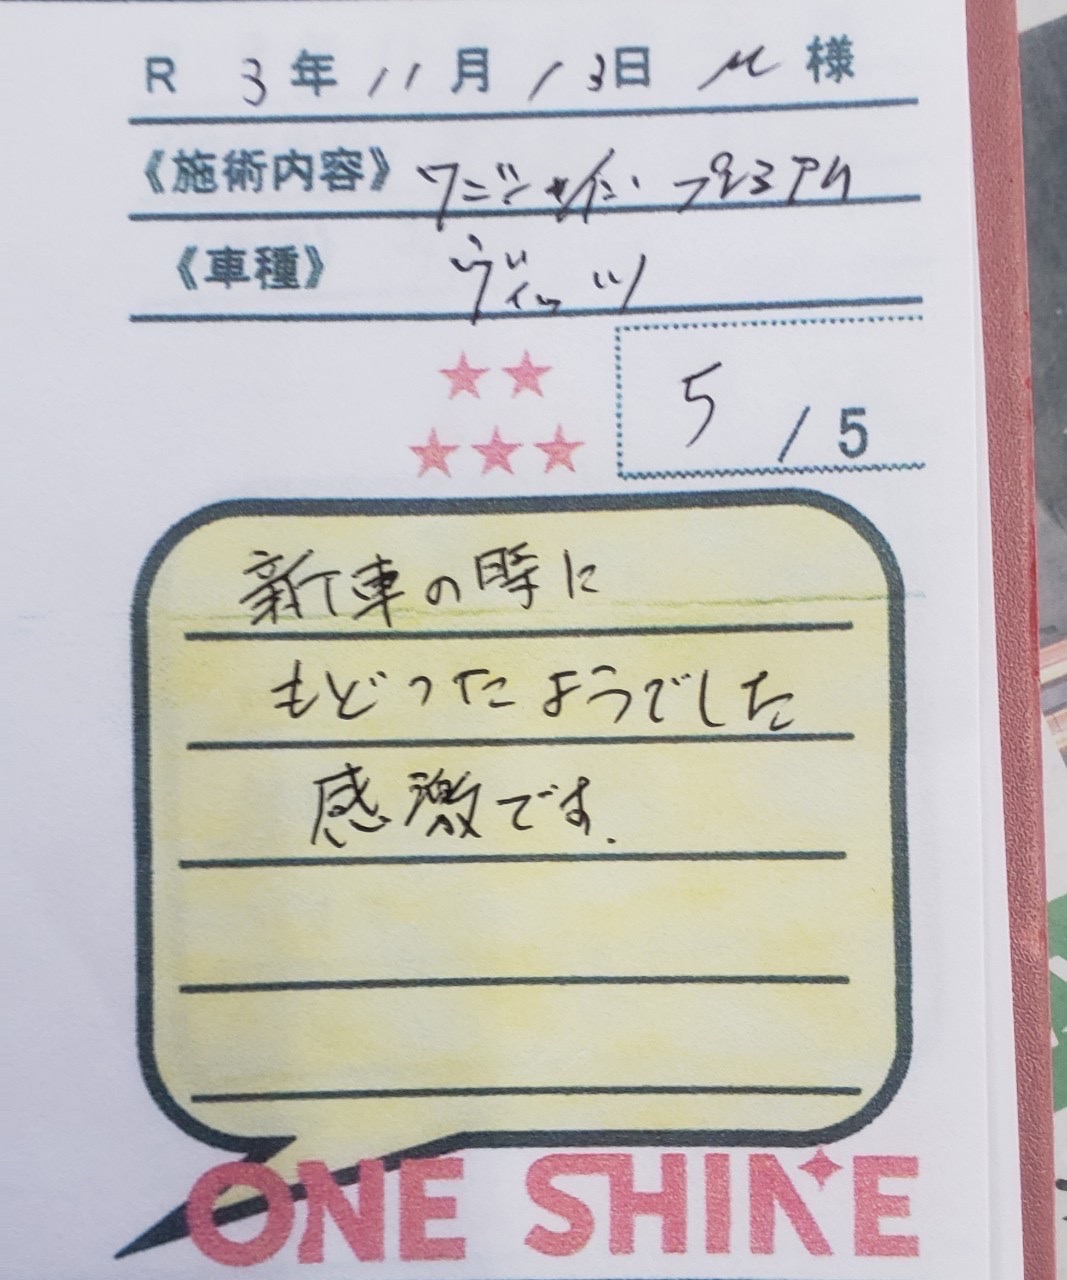 R 3年 11月 13日 M 様
《施術内容》 ワンシャイン プレミアム
《車種》 ヴィッツ
★★
★★★
5 / 5
新車の時に
もどったようでした
感激です.
ONE SHINE